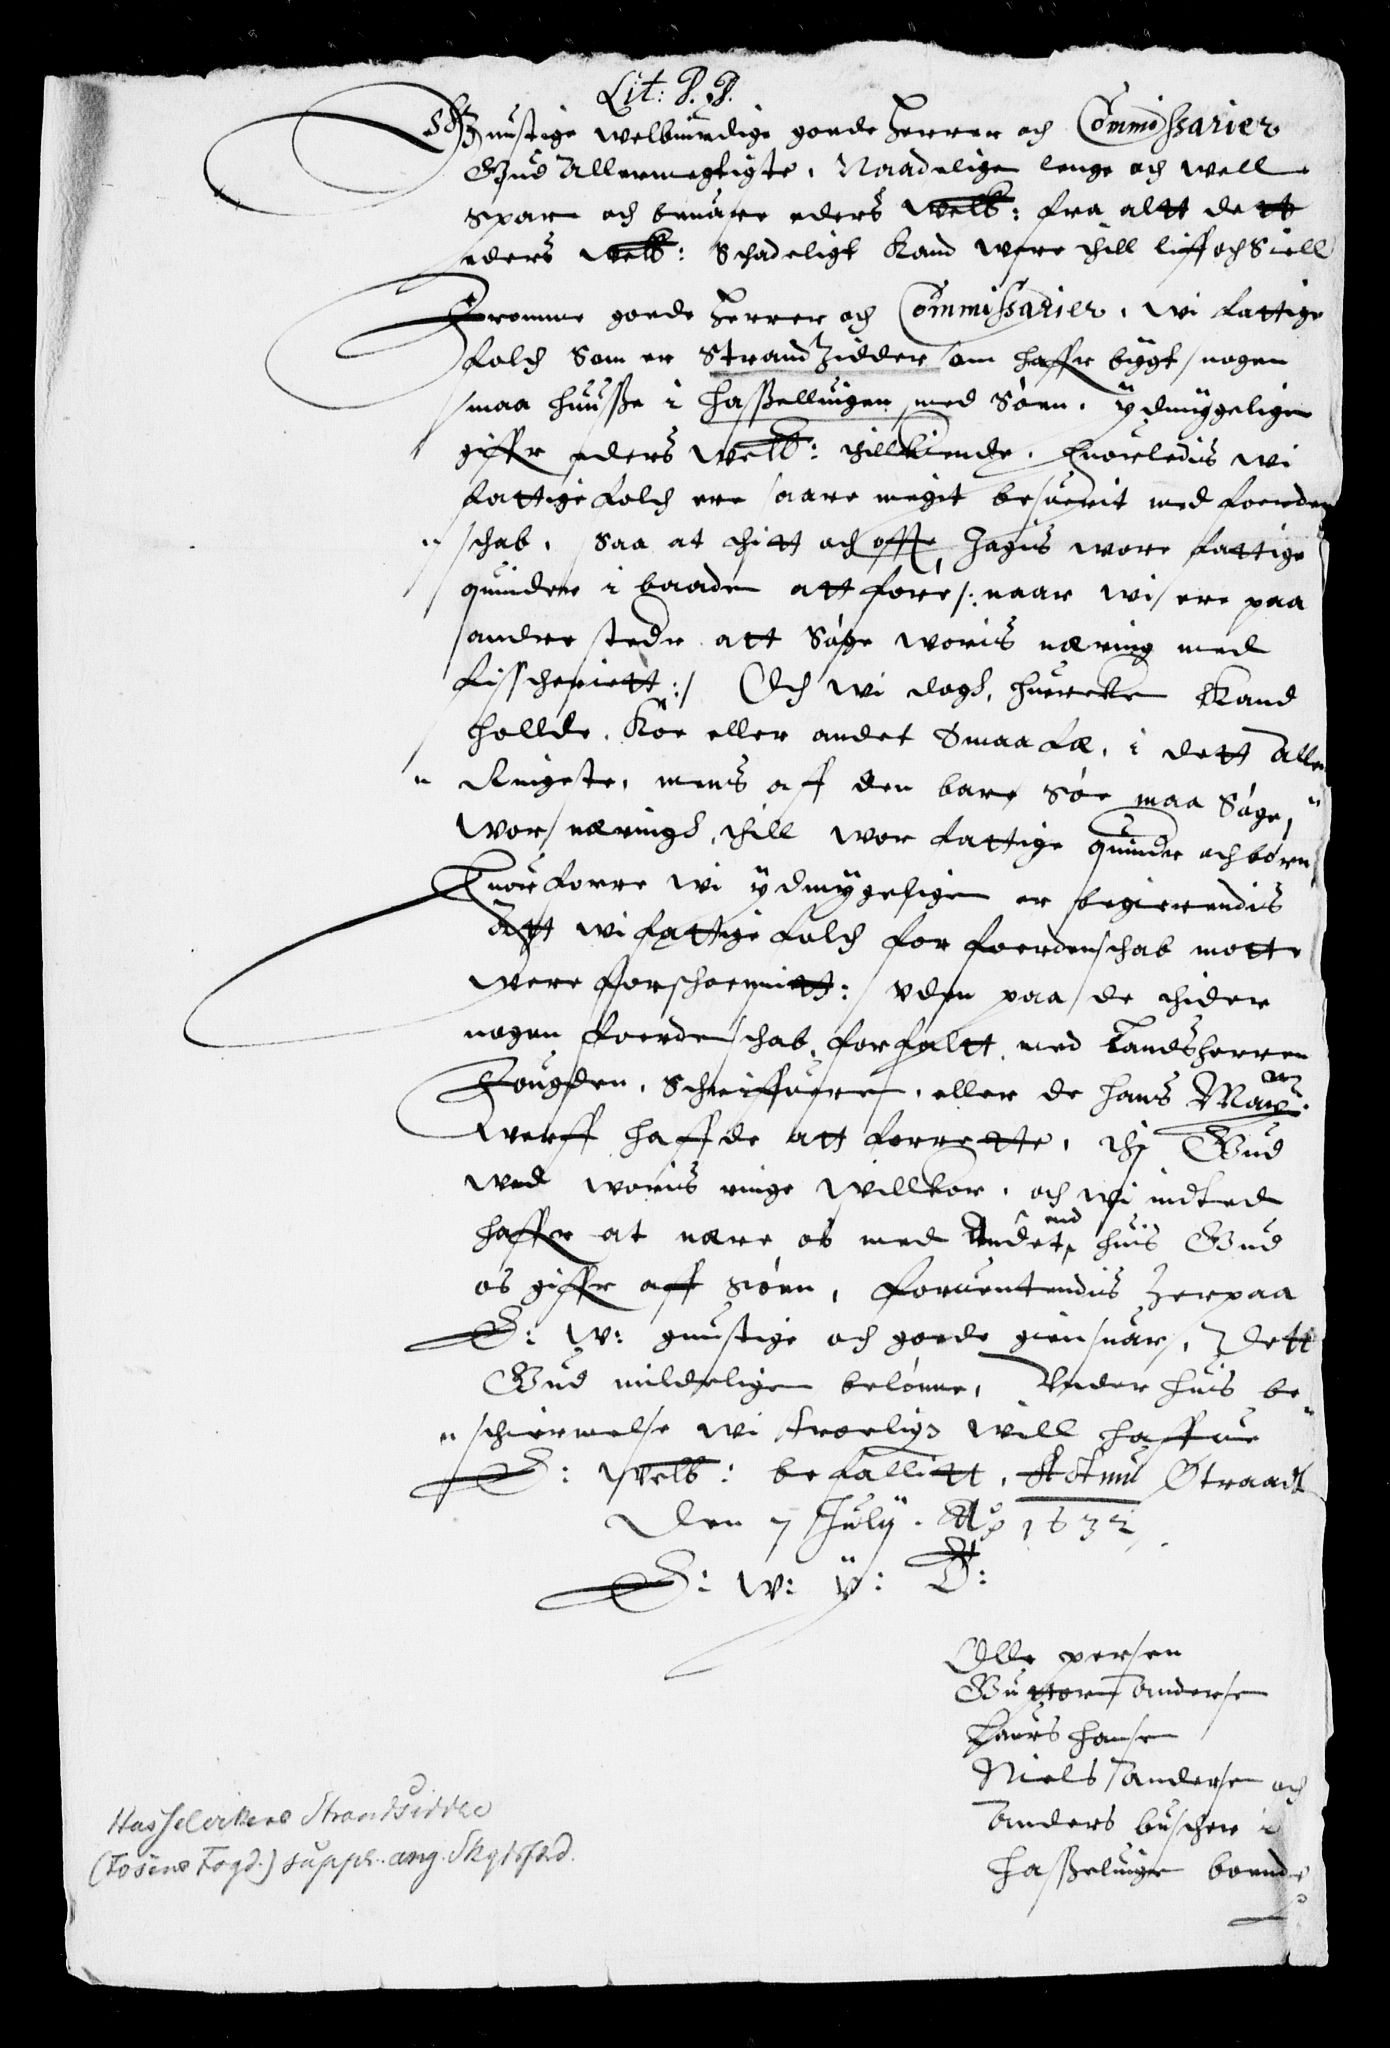 Lit: P. P.
Gunstige welburdige goede Herrer och Commissarier
Gud Allermegtigste, Naadeligen lenge och well
spare och beuare eders welb: fra altt dett
eders welb: Schadeligt kand were thill liff och Siell
Fromme goede Herrer och Commissarier, wi fattige
folch som er StrandZidder som haffr bygt nogen
smaa huusse i Hasselluigen wed Søen, ydmyggeligen
giffr eders welb: thillkiende, huorledis wi
fattige folch ere saare megit besuerit med foerden
schab, saa at thitt och offte Jagis wore fattige
quinder i baaden att føre /: naar wi ere paa
andre steder att søge woris næring med
fisscheriett :/ Och wi dogh, huercken kand
hollde, Køe eller andet Smaa fæ, i dett aller
Ringeste, mens aff den bare Søe maa Søge,
wor næringh, thill wor fattige quinder och børn
Huorforre wi ydmygeligen er begierendis
Att wi fattige folch for foerdenschab motte
were forschoenitt: vden paa de thider
nogen foerdenschab, forfaltt, med Landsherren
Fougden, Schriffueren, eller de hans Maytz
werff haffde att forrette, thj Gud
wed woris ringe willkor, och wi indted
haffr at nære os med Andet end huis Gud
os giffr aff Søen, foruentendis herpaa
E: w: gunstige och goede giensuar, Dett
Gud mildeligen belønne, Vnder huis be
schiermelse wi troelig will haffue
E: welb: befallitt, Actum Østraadt
Den 7 July. Ao 1632
E: w: y: T:
Olle persen
Guttorm Andersen
Laurs hansen
Niels Andersen och
Anders buscher i
Hasseluigen boende
Hasselvikens Strandsidde
(Fosens Fogd.) suppl. ang. Skydsfærd.